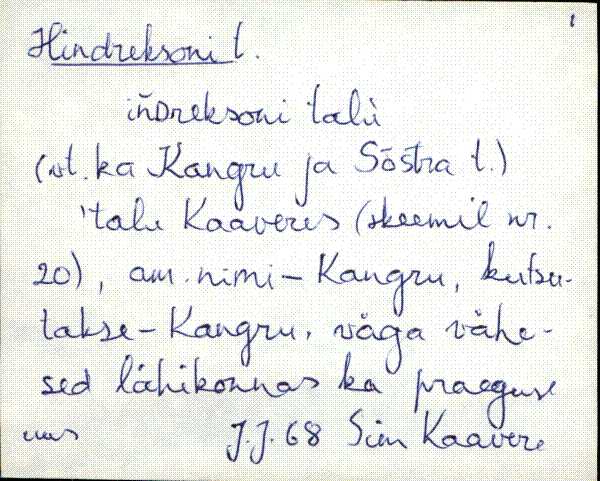 1
Hindreksoni t.
iňDreksoni talù
(vt. ka Kangru ja Sõstra t.)
'talu Kaaveres (skeemil nr.
20), am. nimi - Kangru, kutsu-
takse - Kangru, väga vähe-
sed lähikonnas ka praeguse
J.J. 68 Sim Kaavere